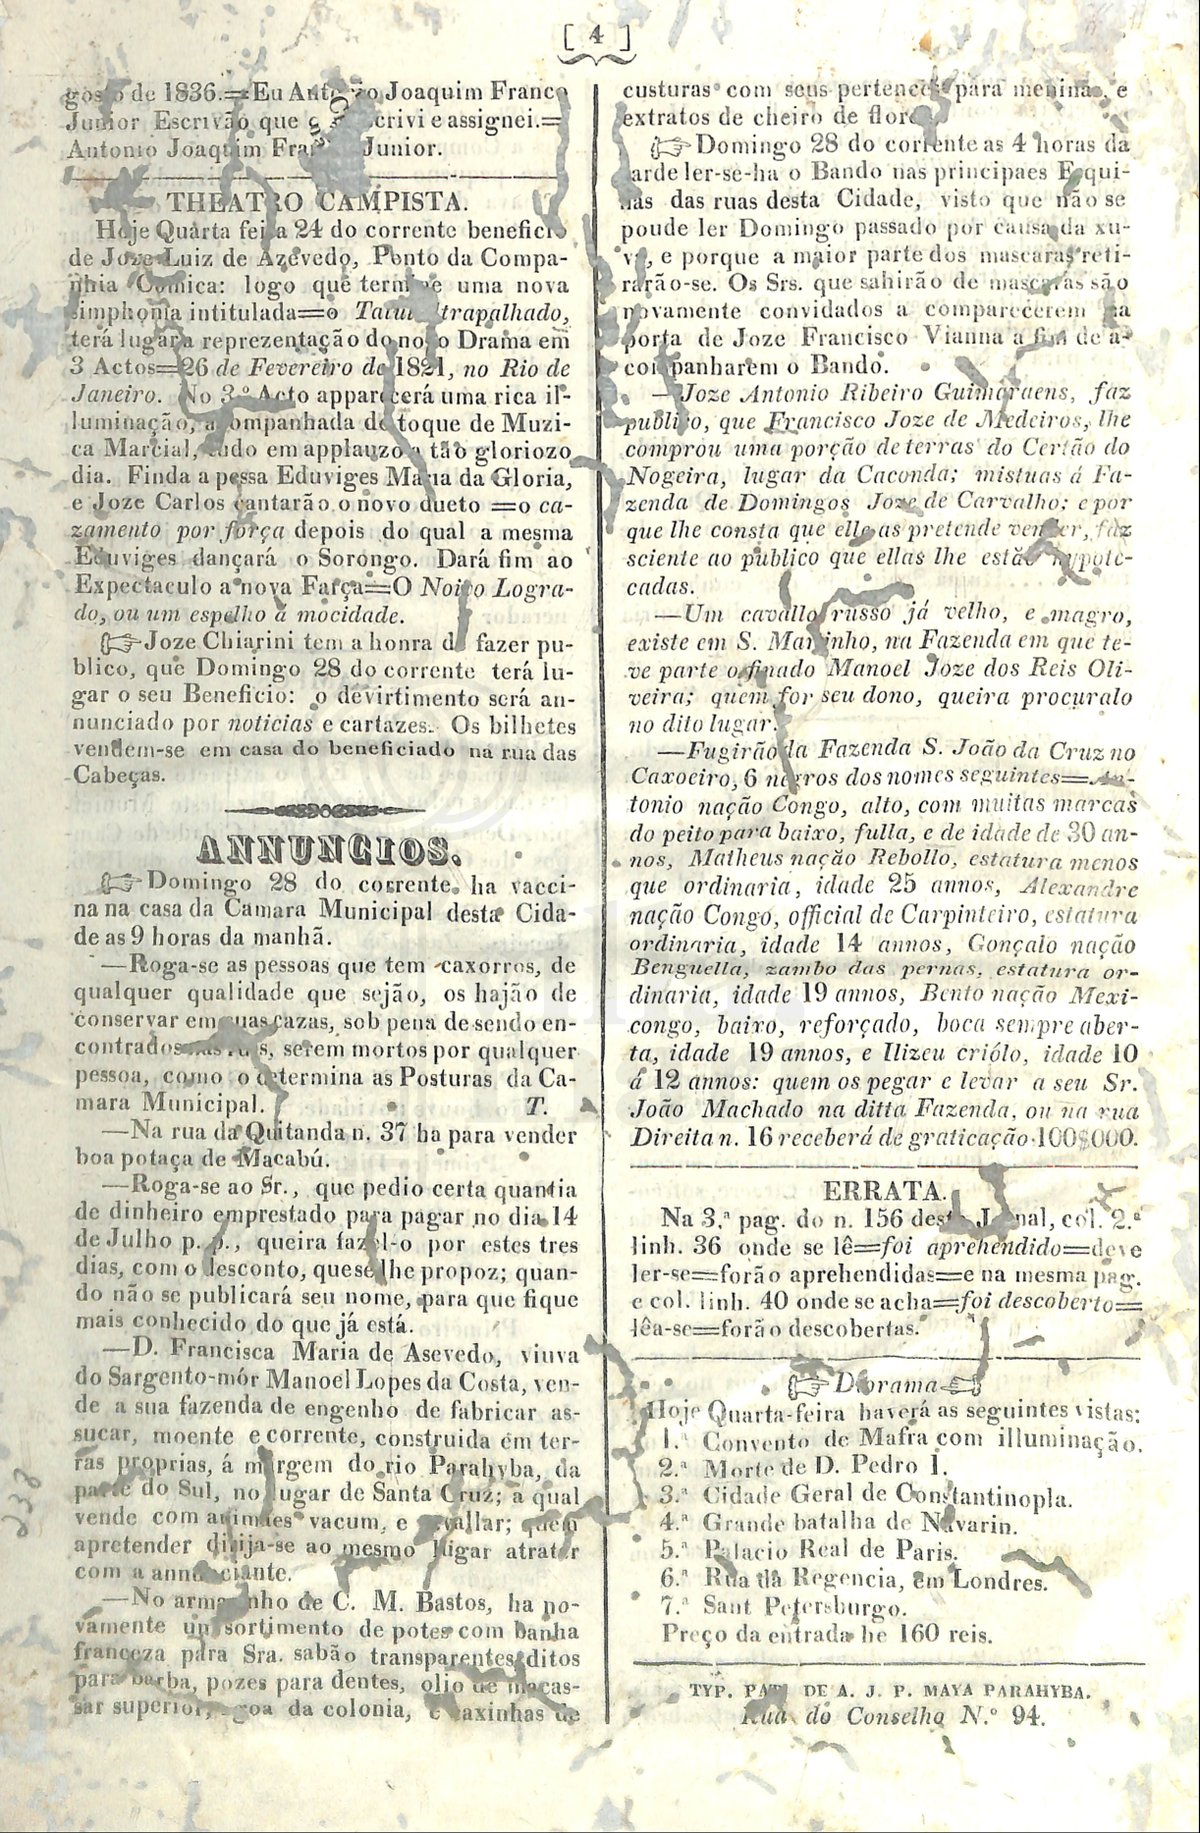 [ 4 ]
gosto de 1836.=Eu Antonio Joaquim Franco
Junior Escrivão que o escrivi e assignei.=
Antonio Joaquim Franco Junior.
THEATRO CAMPISTA.
Hoje Quarta feira 24 do corrente beneficio
de Joze Luiz de Azevedo, Ponto da Compa-
nhia Comica: logo que termine uma nova
simphonia intitulada=o Tatu trapalhado,
terá lugar a reprezentação do novo Drama em
3 Actos=26 de Fevereiro de 1821, no Rio de
Janeiro. No 3.º Acto apparecerá uma rica il-
luminação, acompanhada de toque de Muzi-
ca Marcial, tudo em applauzo a tão gloriozo
dia. Finda a pessa Eduviges Maria da Gloria,
e Joze Carlos cantarão o novo dueto =o ca-
zamento por força depois do qual a mesma
Eduviges dançará o Sorongo. Dará fim ao
Expectaculo a nova Farça=O Noivo Logra-
do, ou um espelho á mocidade.
Joze Chiarini tem a honra de fazer pu-
blico, que Domingo 28 do corrente terá lu-
gar o seu Beneficio: o devirtimento será an-
nunciado por noticias e cartazes. Os bilhetes
vendem-se em casa do beneficiado na rua das
Cabeças.
ANNUNCIOS.
Domingo 28 do corrente ha vacci-
na na casa da Camara Municipal desta Cida-
de as 9 horas da manhã.
—Roga-se as pessoas que tem caxorros, de
qualquer qualidade que sejão, os hajão de
conservar em suas cazas, sob pena de sendo en-
contrados nas ruas, serem mortos por qualquer
pessoa, como o determina as Posturas da Ca-
mara Municipal. T.
—Na rua da Quitanda n. 37 ha para vender
boa potaça de Macabú.
—Roga-se ao Sr., que pedio certa quantia
de dinheiro emprestado para pagar no dia 14
de Julho p. p., queira fazel-o por estes tres
dias, com o desconto, que se lhe propoz; quan-
do não se publicará seu nome, para que fique
mais conhecido do que já está.
—D. Francisca Maria de Asevedo, viuva
do Sargento-mór Manoel Lopes da Costa, ven-
de a sua fazenda de engenho de fabricar as-
sucar, moente e corrente, construida em ter-
ras proprias, á margem do rio Parahyba, da
parte do Sul, no lugar de Santa Cruz; a qual
vende com animaes vacum, e cavallar; quem
apretender dirija-se ao mesmo lugar atratar
com a annunciante.
—No armarinho de C. M. Bastos, ha no-
vamente um sortimento de potes com banha
franceza para Sra. sabão transparentes, ditos
para barba, pozes para dentes, olio de macas-
sar superior, agoa da colonia, e caxinhas de
custuras com seus pertences para meninas, e
extratos de cheiro de flores.
Domingo 28 do corrente as 4 horas da
tarde ler-se-ha o Bando nas principaes Esqui-
nas das ruas desta Cidade, visto que não se
poude ler Domingo passado por causa da xu-
va, e porque a maior parte dos mascaras reti-
rarão-se. Os Srs. que sahirão de mascaras são
novamente convidados a comparecerem na
porta de Joze Francisco Vianna a fim de a-
companharem o Bando.
—Joze Antonio Ribeiro Guimaraens, faz
publico, que Francisco Joze de Medeiros, lhe
comprou uma porção de terras do Certão do
Nogeira, lugar da Caconda; mistuas á Fa-
zenda de Domingos Joze de Carvalho: e por
que lhe consta que elle as pretende vender, faz
sciente ao publico que ellas lhe estão hypote-
cadas.
—Um cavallo russo já velho, e magro,
existe em S. Martinho, na Fazenda em que te-
ve parte o finado Manoel Joze dos Reis Oli-
veira; quem for seu dono, queira procuralo
no dito lugar.
—Fugirão da Fazenda S. João da Cruz no
Caxoeiro, 6 negros dos nomes seguintes=An-
tonio nação Congo, alto, com muitas marcas
do peito para baixo, fulla, e de idade de 30 an-
nos, Matheus nação Rebollo, estatura menos
que ordinaria, idade 25 annos, Alexandre
nação Congo, official de Carpinteiro, estatura
ordinaria, idade 14 annos, Gonçalo nação
Benguella, zambo das pernas, estatura or-
dinaria, idade 19 annos, Bento nação Mexi-
congo, baixo, reforçado, boca sempre aber-
ta, idade 19 annos, e Ilizeu criólo, idade 10
á 12 annos: quem os pegar e levar a seu Sr.
João Machado na ditta Fazenda, ou na rua
Direita n. 16 receberá de graticação 100$000.
ERRATA.
Na 3.ª pag. do n. 156 deste Jornal, col. 2.ª
linh. 36 onde se lê=foi aprehendido=deve
ler-se=forão aprehendidas=e na mesma pag.
e col. linh. 40 onde se acha=foi descoberto=
lêa-se=forão descobertas.
Diorama
Hoje Quarta-feira haverá as seguintes vistas:
1.ª Convento de Mafra com illuminação.
2.ª Morte de D. Pedro I.
3.ª Cidade Geral de Constantinopla.
4.ª Grande batalha de Navarin.
5.ª Palacio Real de Paris.
6.ª Rua da Regencia, em Londres.
7.ª Sant Petersburgo.
Preço da entrada he 160 reis.
TYP. PAT. DE A. J. P. MAYA PARAHYBA.
Rua do Conselho N.º 94.
238